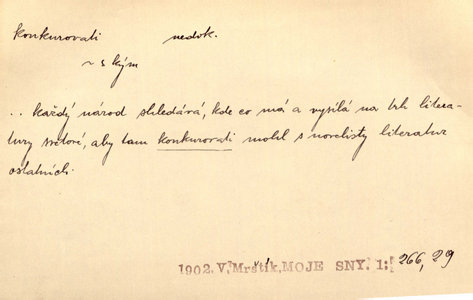 konkurovati nedok.
~ s kým
.. každý národ shledává, kde co má a vysílá na trh litera-
tury světové, aby tam konkurovati mohl s novelisty literatur
ostatních.
1902. V. Mrštík, MOJE SNY. 1: 266, 29